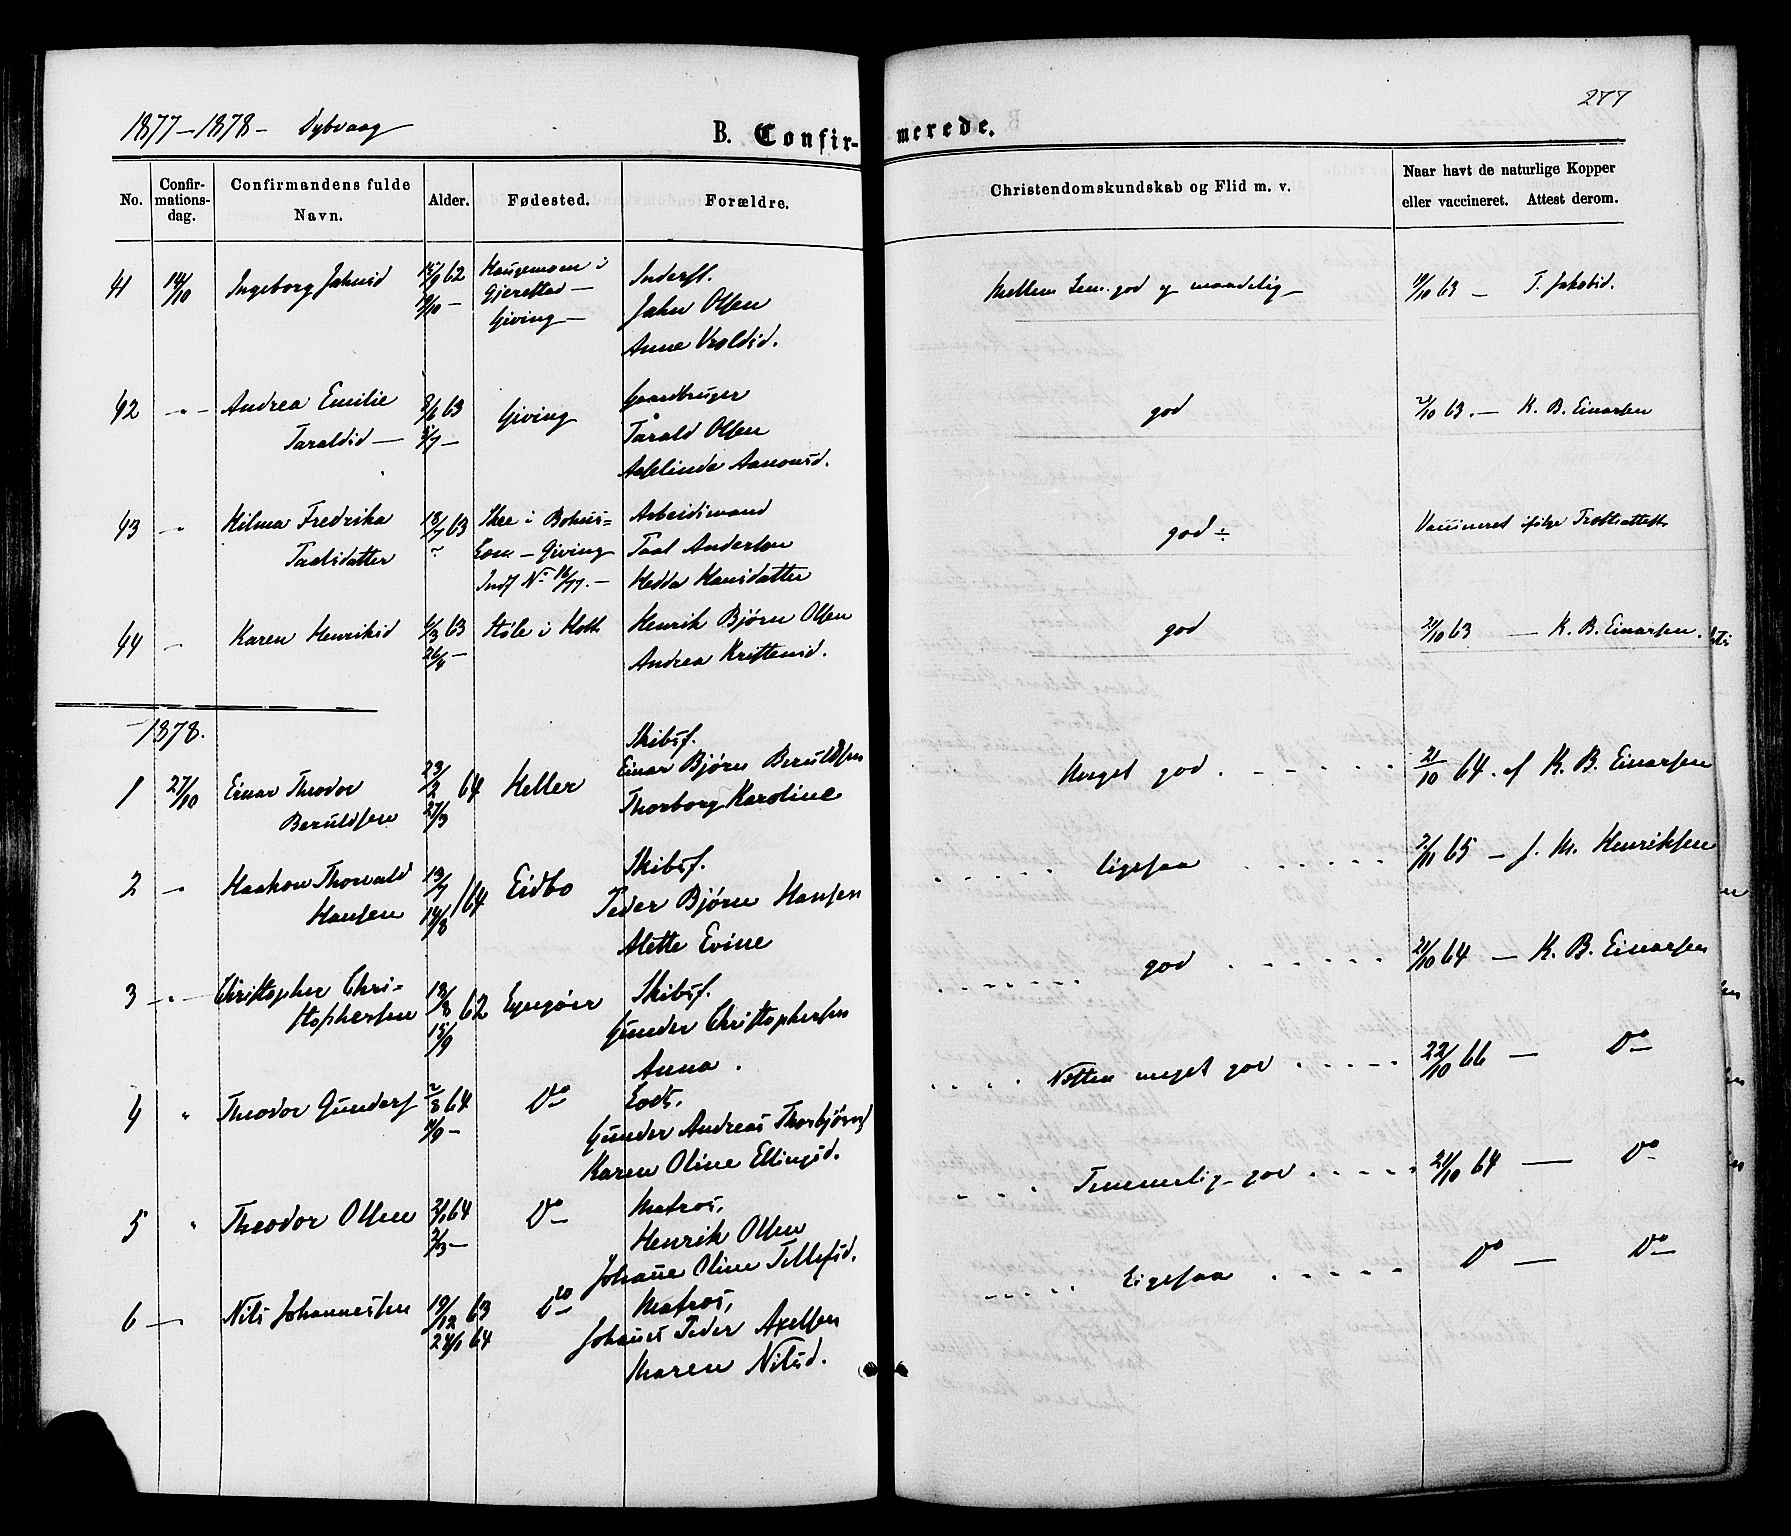 277
1877-1878- Dybvaag
B. Confirmerede.
No.
Confir-
mations-
dag.
Confirmandens fulde
Navn.
Alder.
Fødested.
Forældre.
Christendomskundskab og Flid m. v.
Naar havt de naturlige Kopper
eller vaccineret. Attest derom.
41 14/10 Ingeborg Jahnsd 15/9 62
Gjerestad -
Giving -
Inderst.
Jahn Olsen
Anne Vroldsd.
Mellem god og maadelig 63 - T. Jakobsd.
42 -"- Andrea Emilie
Taraldsd - 63
5/7 -
Giving
Gaardbruger
Tarald Olsen
Aslinde Aanonsd.
god
2/10 63. - K. B. Einarsen
43 " Hilma Fredrika
Taalsdatter
18/7 63
Skee i Bohus=
Giving
Indf No 16/77. -
Arbeidsmand
Taal Andersen
Hedda Hansdatter
god ÷
Vaccineret ifølge
44 - Karen Henriksd
6/3 63
26/4 -
Støle i Holt
Henrik Bjørn Olsen
Andrea Kristensd.
god
2/10 63 - K. B. Einarsen.
1878.
1 27/10 Einar Theodor
Beruldsen
23/2 64
27/3
Heller
Skibsf.
Einar Bjørn Beruldsen
Thorborg Karoline
Meget god.
21/10 64. af K. B. Einarsen
2 " Haakon Thorvald
Hansen
13/7 64
14/8
Eidbo
Skibsf.
Peder Bjørn Hansen
Alette Evine
ligesaa
2/11 65 - J. M. Henriksen
3 -"- Christopher Chri=
stophersen
18/8 62
15/9
Lyngøer
Skibsf.
Gunder Christophersen
Anna.
god
21/10 64 - K. B. Einarsen
4 " Theodor Gunders
2/8 64
4/9 -
Do
Lods.
Gunder Andreas Thorbjørns
Karen Oline Ellingsd.
Næsten meget god
22/10 66 - Do
5 " Theodor Olsen
2/1 64
2/3 -
Do
Matros,
Henrik Olsen
Johanne Oline Tellefsd.
Temmelig god
21/10 64 - Do
6 - Nils Johannesen
19/12 63
24/1 64
Do
Matros,
Johanes Peder Axelsen
Maren Nilsd.
Ligesaa
Do - Do